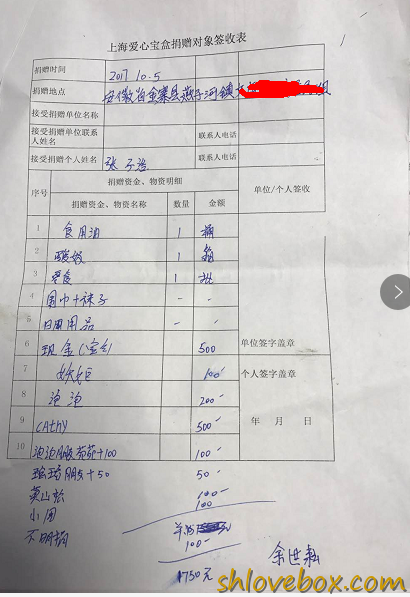 上海爱心宝盒捐赠对象签收表
捐赠时间 2017.10.5
捐赠地点 安徽省金寨县燕子河镇
接受捐赠单位名称
接受捐赠单位联系人姓名 联系人电话
接受捐赠个人姓名 张子浩 联系人电话
序号 捐赠资金、物资明细 单位/个人签收
捐赠资金、物资名称 数量 金额
1 食用油 1 桶
2 酸奶 1 箱
3 零食 1 批
4 围巾+袜子 - -
5 日用用品 - -
6 现金 500 单位签字盖章
7 100 个人签字盖章
8 泡泡 200
9 CAthy 500 年 月 日
10 泡泡朋友茹茹+100 100
朋友+50 50
英山松 100
小周 100
100
1750元
余世耘
shlovebox.com